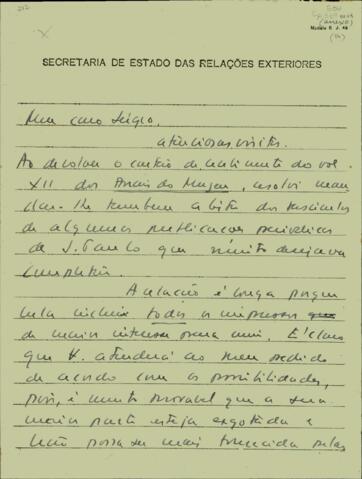 212
SECRETARIA DE ESTADO DAS RELAÇÕES EXTERIORES
Meu caro Sérgio,
atenciosas visitas.
Ao devolver o cartão de recebimento do vol.
XII dos Anais do Museu, resolvi man-
dar-lhe também a lista dos fascículos
de algumas publicações periódicas
de S. Paulo que muito desejava
completar.
A relação é longa porque
nela incluí todos os impressos que
de maior interesse para mim. É claro
que V. atenderá ao meu pedido
de acordo com as possibilidades,
pois, é muito provável que a sua
maior parte esteja esgotada e
não possa ser mais fornecida pelas